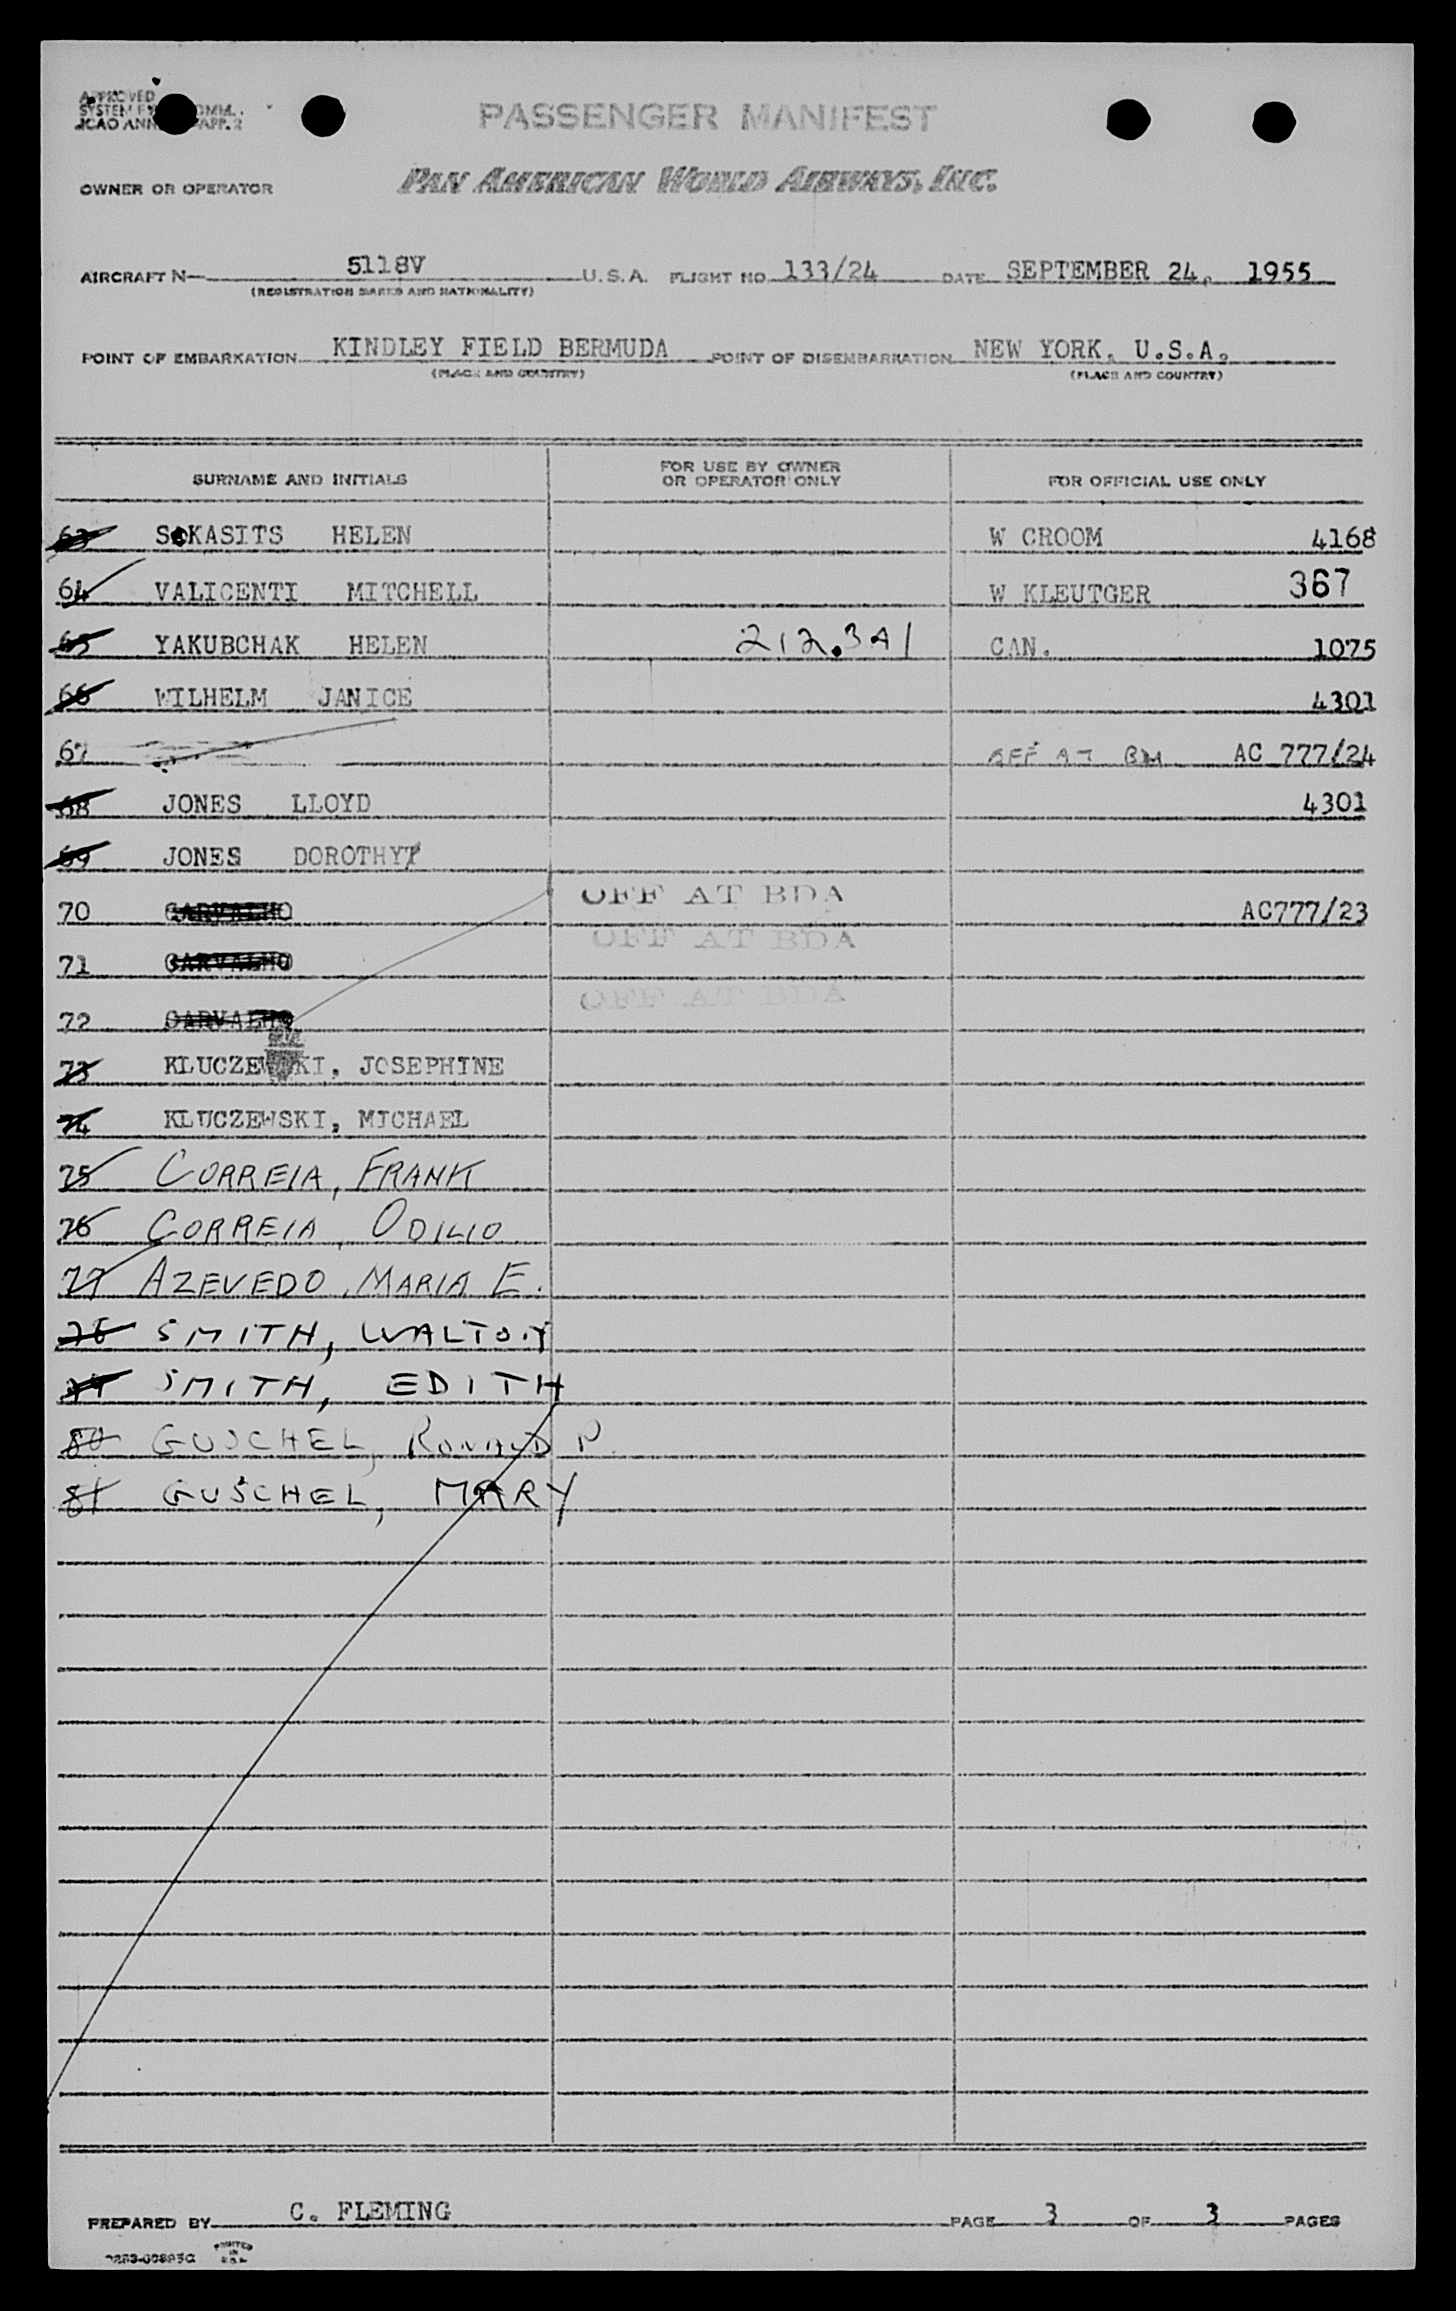 APPROVED
PASSENGER MANIFEST
OWNER OR OPERATOR PAN AMERICAN WORLD AIRWAYS, INC.
AIRCRAFT N— 5118V U.S.A. FLIGHT NO. 133/24 DATE SEPTEMBER 24, 1955
(REGISTRATION MARKS AND NATIONALITY)
POINT OF EMBARKATION KINDLEY FIELD BERMUDA POINT OF DISEMBARKATION NEW YORK, U.S.A.
(PLACE AND COUNTRY) (PLACE AND COUNTRY)
SURNAME AND INITIALS FOR USE BY OWNER OR OPERATOR ONLY FOR OFFICIAL USE ONLY
63 HELEN W CROOM 4168
64 VALICENTI MITCHELL W KLEUTGER 367
65 YAKUBCHAK HELEN 212.3A1 CAN. 1075
66 WILHELM JANICE 4301
67 OFF AT BDA AC 777/24
68 JONES LLOYD 4301
69 JONES DOROTHY
70 CARVALHO OFF AT BDA AC777/23
71 CARVALHO OFF AT BDA
72 CARVALHO OFF AT BDA
73 KLUCZEWSKI, JOSEPHINE
74 KLUCZEWSKI, MICHAEL
75 CORREIA, FRANK
76 CORREIA, ODILIO
77 AZEVEDO, MARIA E.
78 SMITH, WALTON
79 SMITH, EDITH
80 GUSCHEL, RONALD P.
81 GUSCHEL, MARY
PREPARED BY C. FLEMING PAGE 3 OF 3 PAGES
PRINTED
IN
U.S.A.